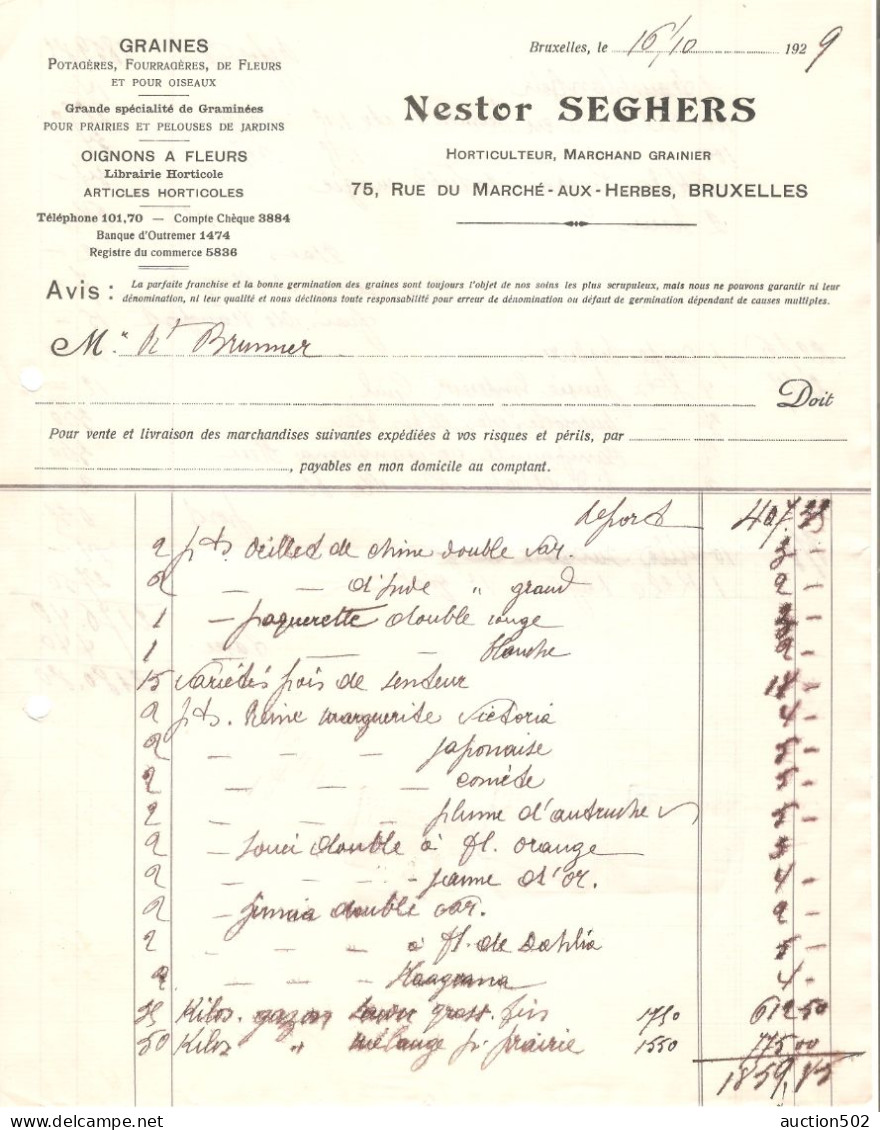 GRAINES
POTAGÈRES, FOURRAGÈRES, DE FLEURS
ET POUR OISEAUX
Grande spécialité de Graminées
POUR PRAIRIES ET PELOUSES DE JARDINS
OIGNONS A FLEURS
Librairie Horticole
ARTICLES HORTICOLES
Téléphone 101,70 — Compte Chèque 3884
Banque d'Outremer 1474
Registre du commerce 5836
Bruxelles, le 16/10 1929
Nestor SEGHERS
HORTICULTEUR, MARCHAND GRAINIER
75, RUE DU MARCHÉ-AUX-HERBES, BRUXELLES
Avis : La parfaite franchise et la bonne germination des graines sont toujours l'objet de nos soins les plus scrupuleux, mais nous ne pouvons garantir ni leur
dénomination, ni leur qualité et nous déclinons toute responsabilité pour erreur de dénomination ou défaut de germination dépendant de causes multiples.
M. Brunner
Doit
Pour vente et livraison des marchandises suivantes expédiées à vos risques et périls, par
, payables en mon domicile au comptant.
report
2 pts. œillet de chine double var. 3 -
2 — — d'Inde " grand 2 -
1 — paquerette double rouge
1 — — — blanche 2 -
15 variétés pois de senteur -
2 pts. Reine marguerite victoria 4 -
2 — — — japonaise 5 -
2 — — — comète 5 -
2 — — — plume d'autruche 5 -
2 — Souci double à fl. orange
2 — — — jeanne d'or. 4 -
2 — Zinnia double var. 2 -
2 — — — à fl. de Dahlia 5 -
2 — — — Haageana 4 -
35 Kilos. gazon fin 1750 612 50
50 Kilos " mélange p. prairie 1550 775 00
1859,85
auction502